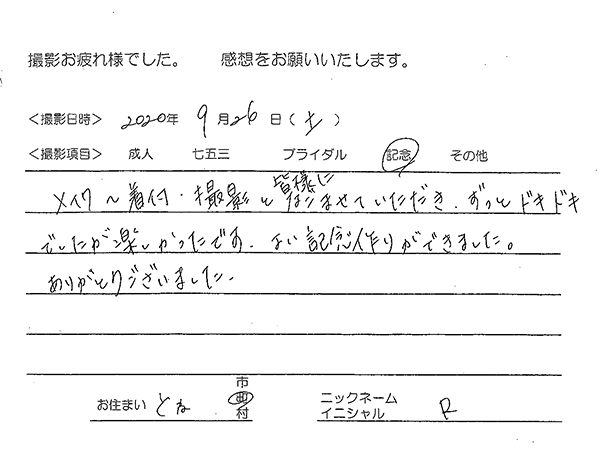 撮影お疲れ様でした。 感想をお願いいたします。
<撮影日時> 2020年 9月26日(土)
<撮影項目> 成人 七五三 ブライダル 記念 その他
メイク～着付・撮影と皆様に ませていただき、ずっとドキドキ
でしたが楽しかったです。よい記念作りができました。
ありがとうございました。
お住まい とね 市町村 ニックネーム イニシャル R